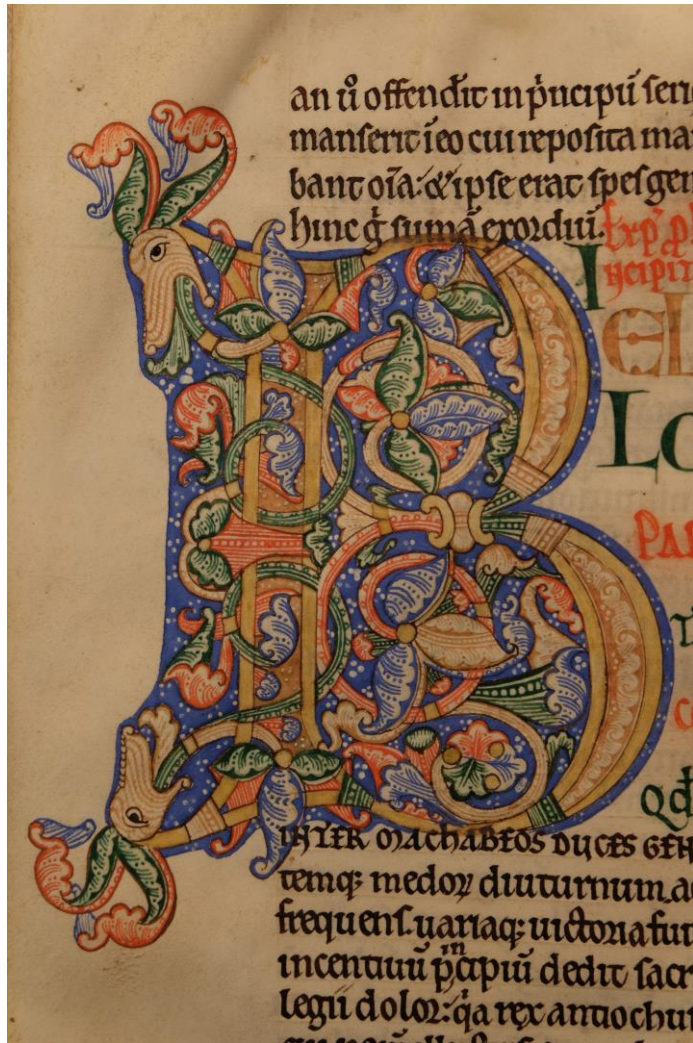 an ů offendit in p̓ncipiū seri
manserit ī eo cui reposita ma
bant oīa: & ipse erat spes gen
hinc g̊ sumā exordiū.
Exp̓ p̓
I ncipiṫ
EL
LO
PAR
B
INTER MACHABEOS DUCES GEN
temq; medoꝝ diuturnum. a
frequens. uariaq; uictoria fu
incentiuū p̓cipiū in dedit sacr
legii dolor: q̓a rex antiochu